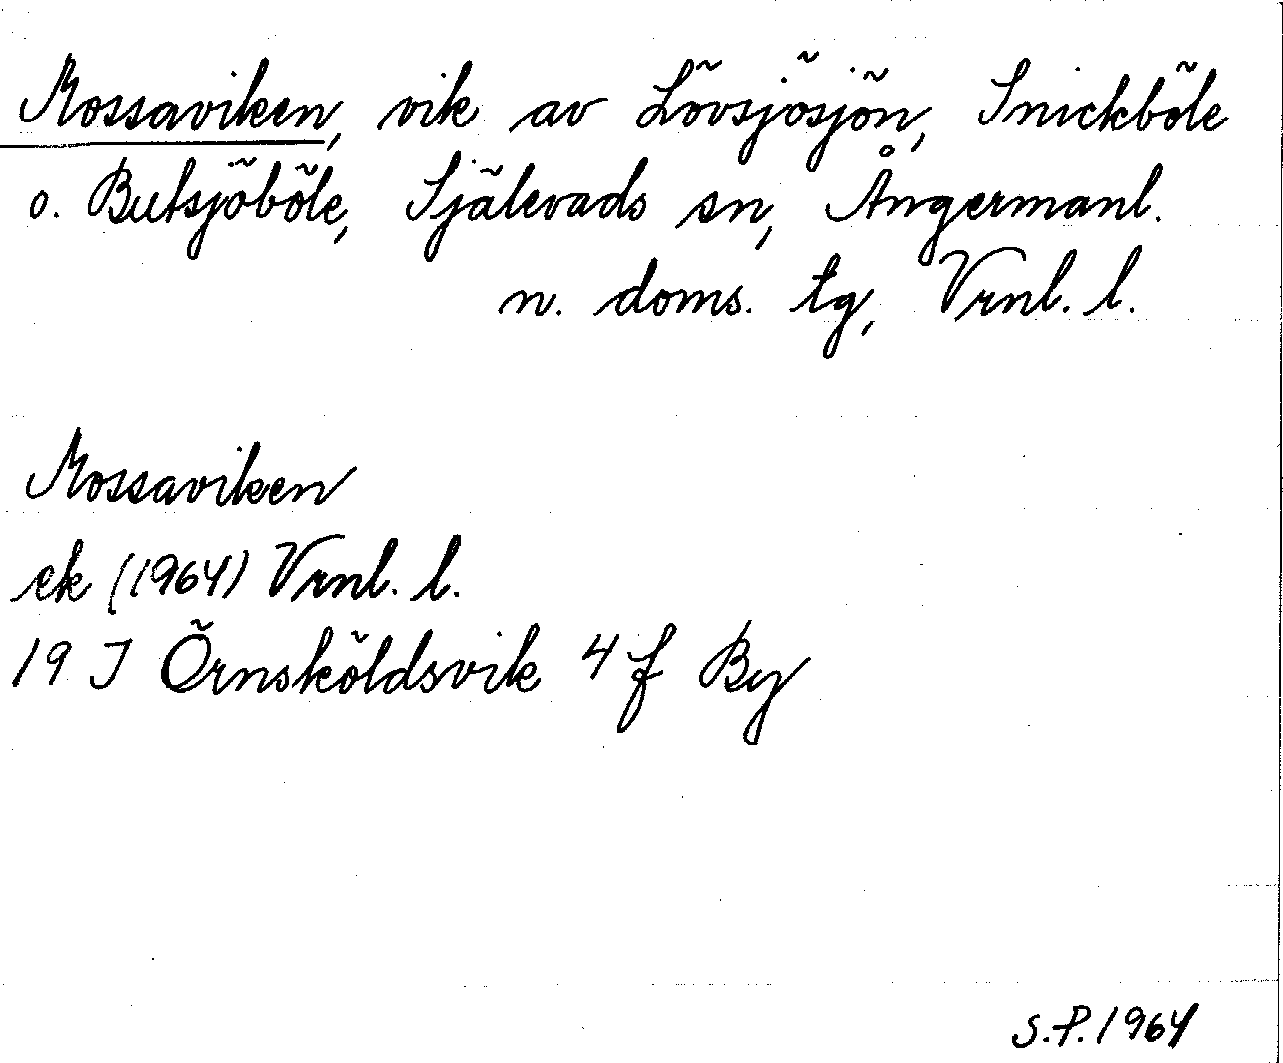 Mossaviken, vik av Lövsjösjön, Snickböle
o. Butsjöböle, Själevads sn, Ångermanl.
n. doms. tg, Vrnl. l.
Mossaviken
ek (1964) Vrnl. l.
19 J Örnsköldsvik 4 f By
S.P. 1964